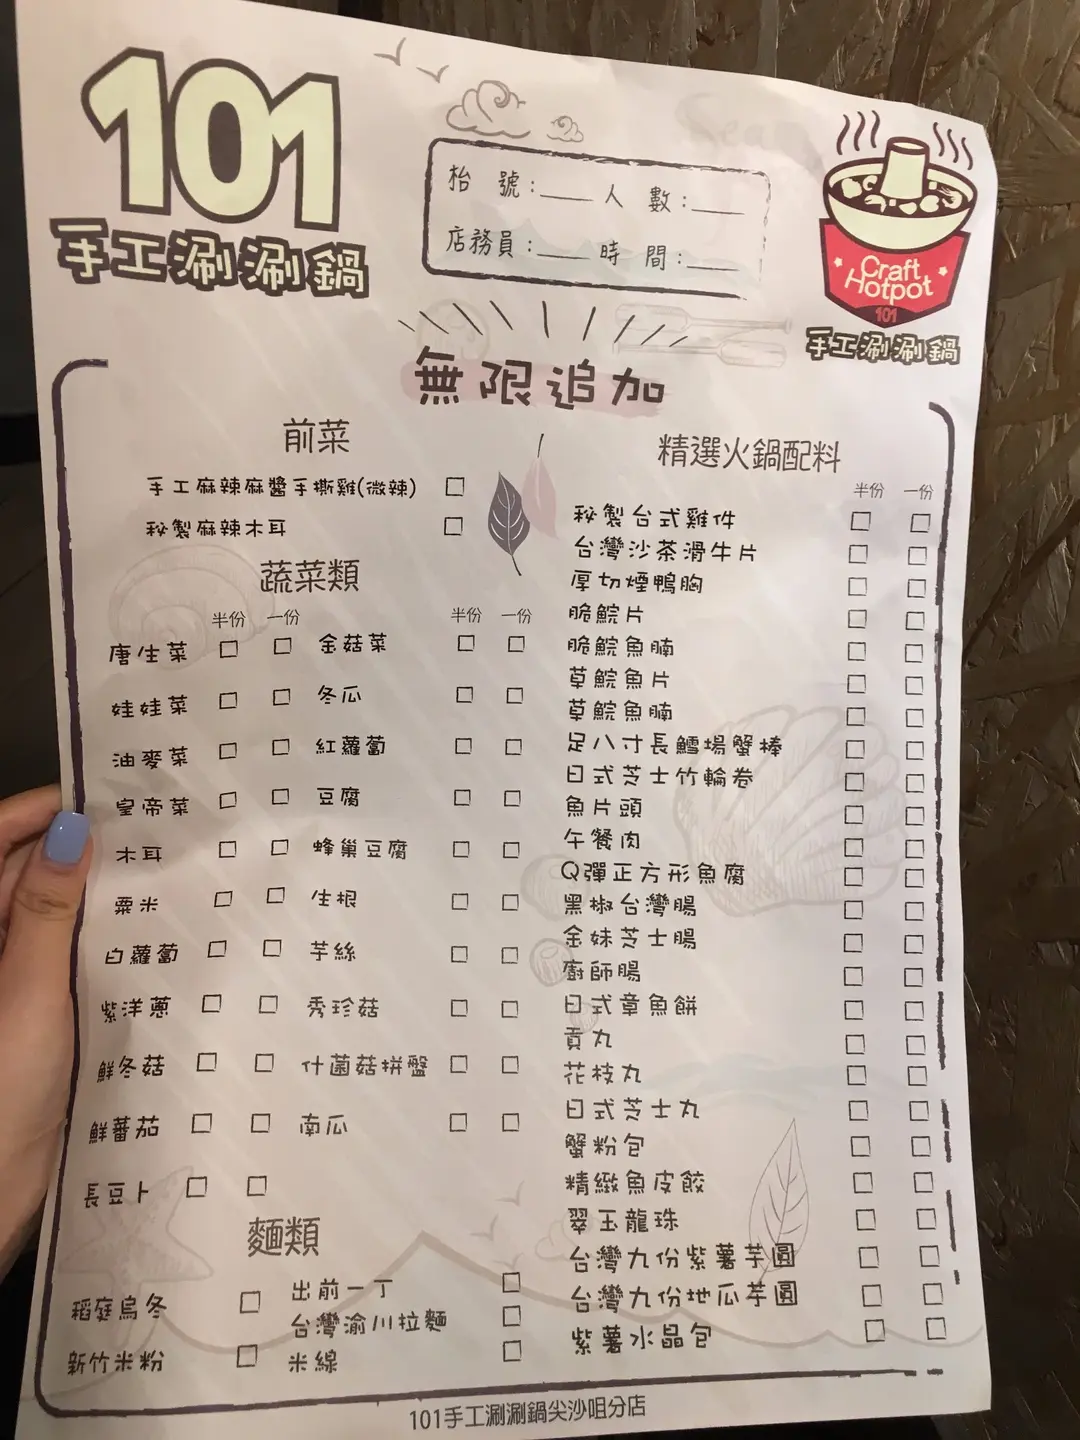 101
手工涮涮鍋
枱 號：___ 人 數：___
店務員：___ 時 間：___
Craft
Hotpot
101
手工涮涮鍋
無限追加
前菜
手工麻辣麻醬手撕雞(微辣) □
秘製麻辣木耳 □
蔬菜類
半份 一份 半份 一份
唐生菜 □ □ 金菇菜 □ □
娃娃菜 □ □ 冬瓜 □ □
油麥菜 □ □ 紅蘿蔔 □ □
皇帝菜 □ □ 豆腐 □ □
木耳 □ □ 蜂巢豆腐 □ □
粟米 □ □ 生根 □ □
白蘿蔔 □ □ 芋絲 □ □
紫洋蔥 □ □ 秀珍菇 □ □
鮮冬菇 □ □ 什菌菇拼盤 □ □
鮮蕃茄 □ □ 南瓜 □ □
長豆卜 □ □
麵類
稻庭烏冬 □
新竹米粉 □
出前一丁 □
台灣渝川拉麵 □
米線 □
精選火鍋配料
半份 一份
秘製台式雞件 □ □
台灣沙茶滑牛片 □ □
厚切煙鴨胸 □ □
脆鯇片 □ □
脆鯇魚腩 □ □
草鯇魚片 □ □
草鯇魚腩 □ □
足八寸長鱈場蟹棒 □ □
日式芝士竹輪卷 □ □
魚片頭 □ □
午餐肉 □ □
Q彈正方形魚腐 □ □
黑椒台灣腸 □ □
金妹芝士腸 □ □
廚師腸 □ □
日式章魚餅 □ □
貢丸 □ □
花枝丸 □ □
日式芝士丸 □ □
蟹粉包 □ □
精緻魚皮餃 □ □
翠玉龍珠 □ □
台灣九份紫薯芋圓 □ □
台灣九份地瓜芋圓 □ □
紫薯水晶包 □ □
101手工涮涮鍋尖沙咀分店